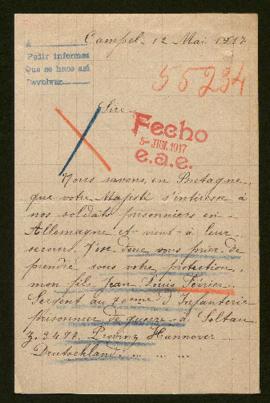 Campel, 12 Mai 1917
A
Pedir informes
Que se hace así
Devolver
55234
Sire
Fecho
5 JUL 1917
e.a.e.
Nous savons, en Bretagne,
que votre Majesté s'intéresse à
nos soldats prisonniers en
Allemagne et vient à leur
secours. J'ose donc vous prier de
prendre sous votre protection,
mon fils Jean Louis
Sergent au d'Infanterie
prisonnier de guerre à Soltau
Z. 3 Provinz Hannover
Deutschland